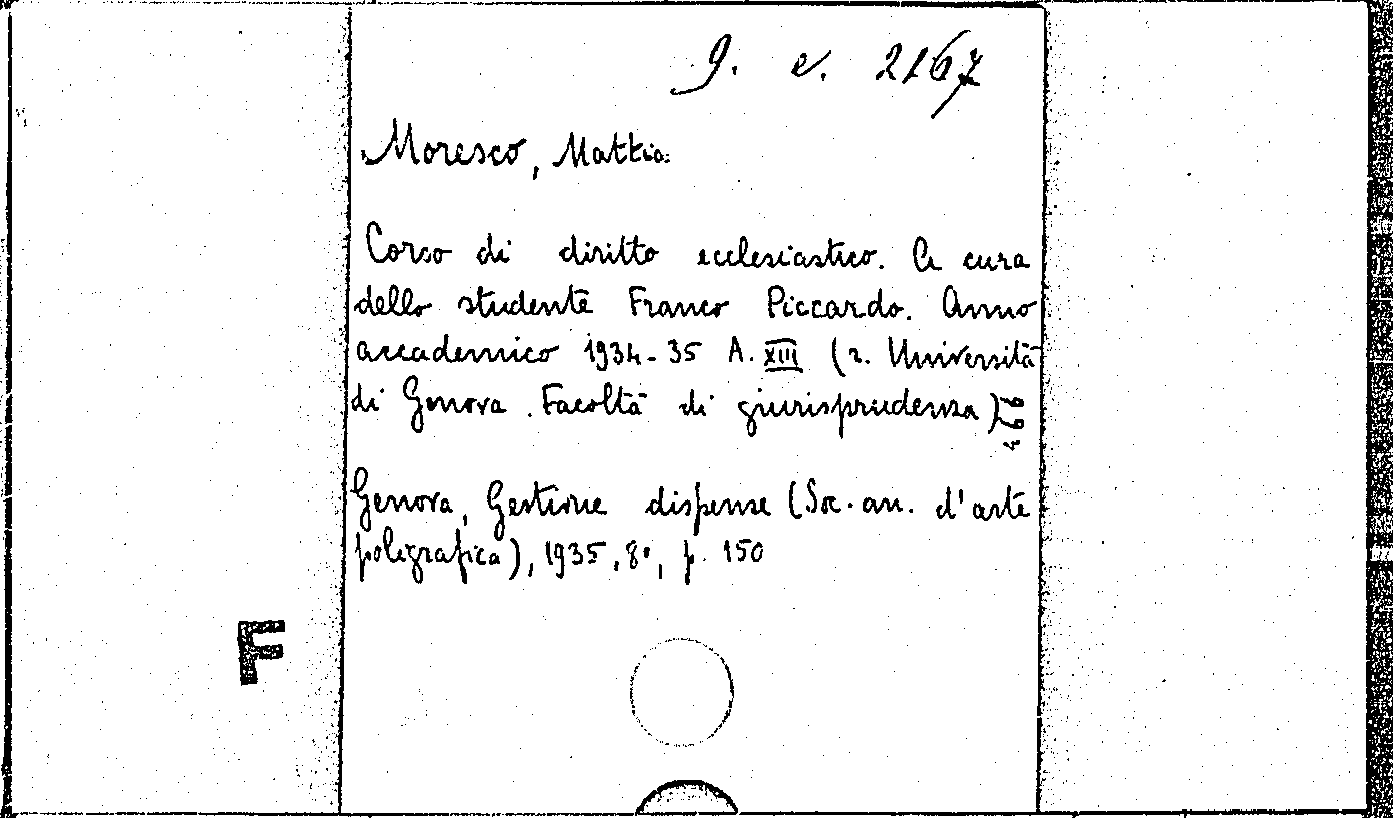 9. e. 2167
Moresco, Mattia
Corso di diritto ecclesiastico. A cura
dello studente Franco Piccardo. Anno
accademico 1934-35 A. XIII (r. Università
di Genova. Facoltà di giurisprudenza)
Genova, Gestione dispense (Soc. an. d'arte
poligrafica), 1935, 8°, p. 150
F